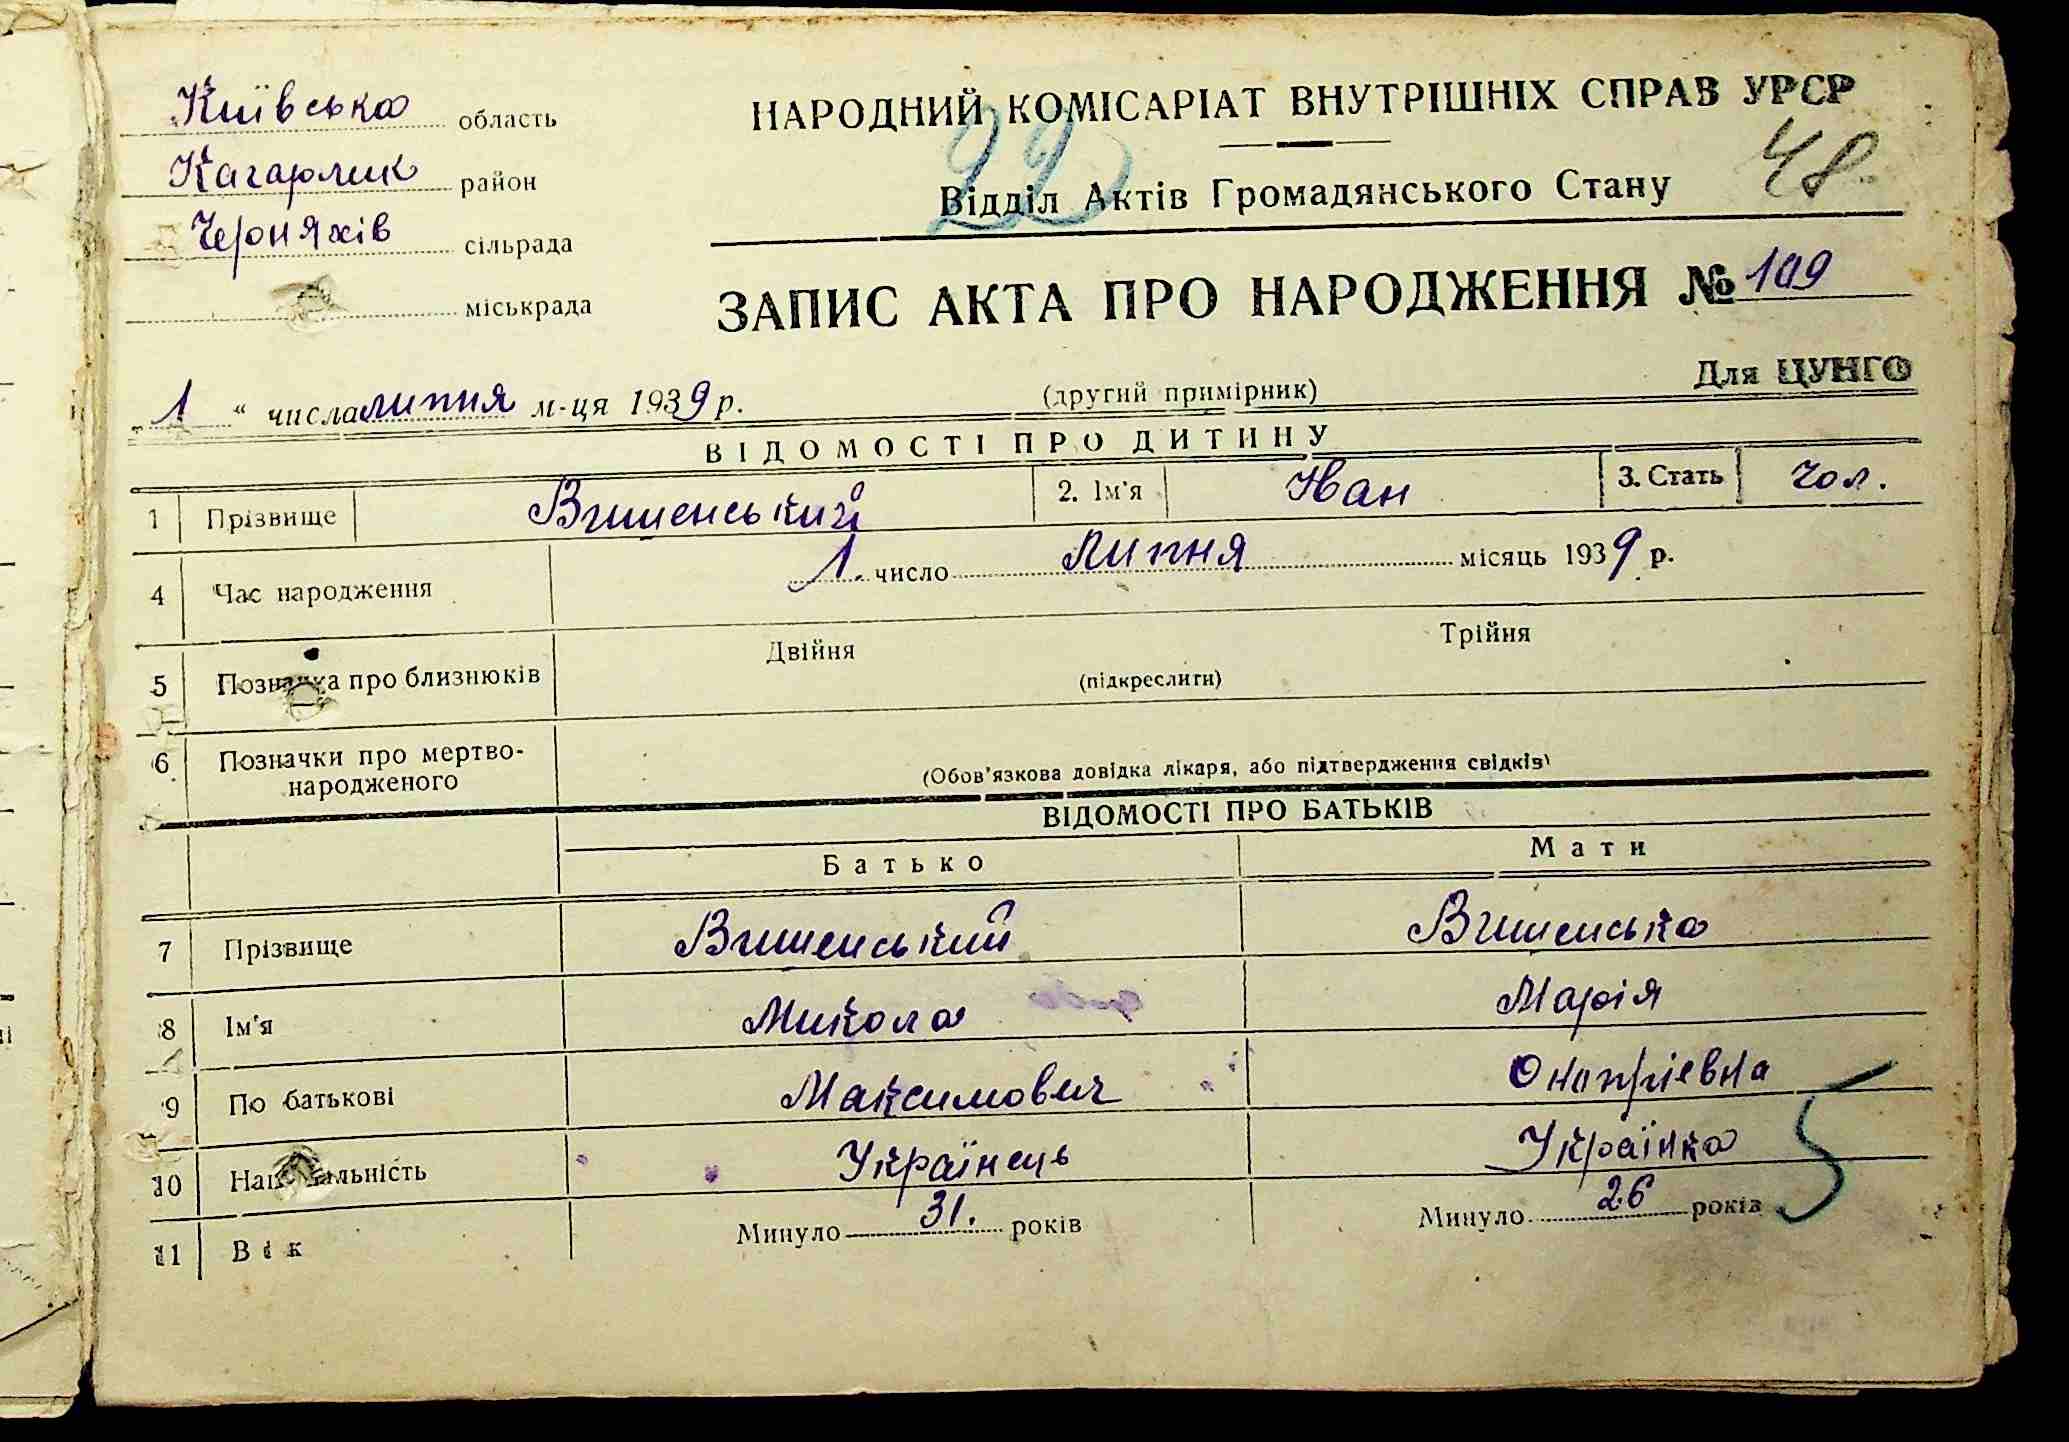 Київська область
Кагарлик район
Черняхів сільрада
міськрада
НАРОДНИЙ КОМІСАРІАТ ВНУТРІШНІХ СПРАВ УРСР
22
48
Відділ Актів Громадянського Стану
ЗАПИС АКТА ПРО НАРОДЖЕННЯ № 109
„ 1 “ числа липня м-ця 1939 р.
(другий примірник)
Для ЦУНГО
ВІДОМОСТІ ПРО ДИТИНУ
1 Прізвище Вишенський 2. Ім'я Іван 3. Стать чол.
4 Час народження 1. число липня місяць 1939 р.
5 Позначка про близнюків Двійня Трійня
(підкреслити)
6 Позначки про мертво-
народженого
(Обов'язкова довідка лікаря, або підтвердження свідків)
ВІДОМОСТІ ПРО БАТЬКІВ
Батько Мати
7 Прізвище Вишенський Вишенська
8 Ім'я Микола Марія
9 По батькові Максимович Онапріевна
10 Національність Українець Українка
5
11 Вік Минуло 31. років Минуло 26 років